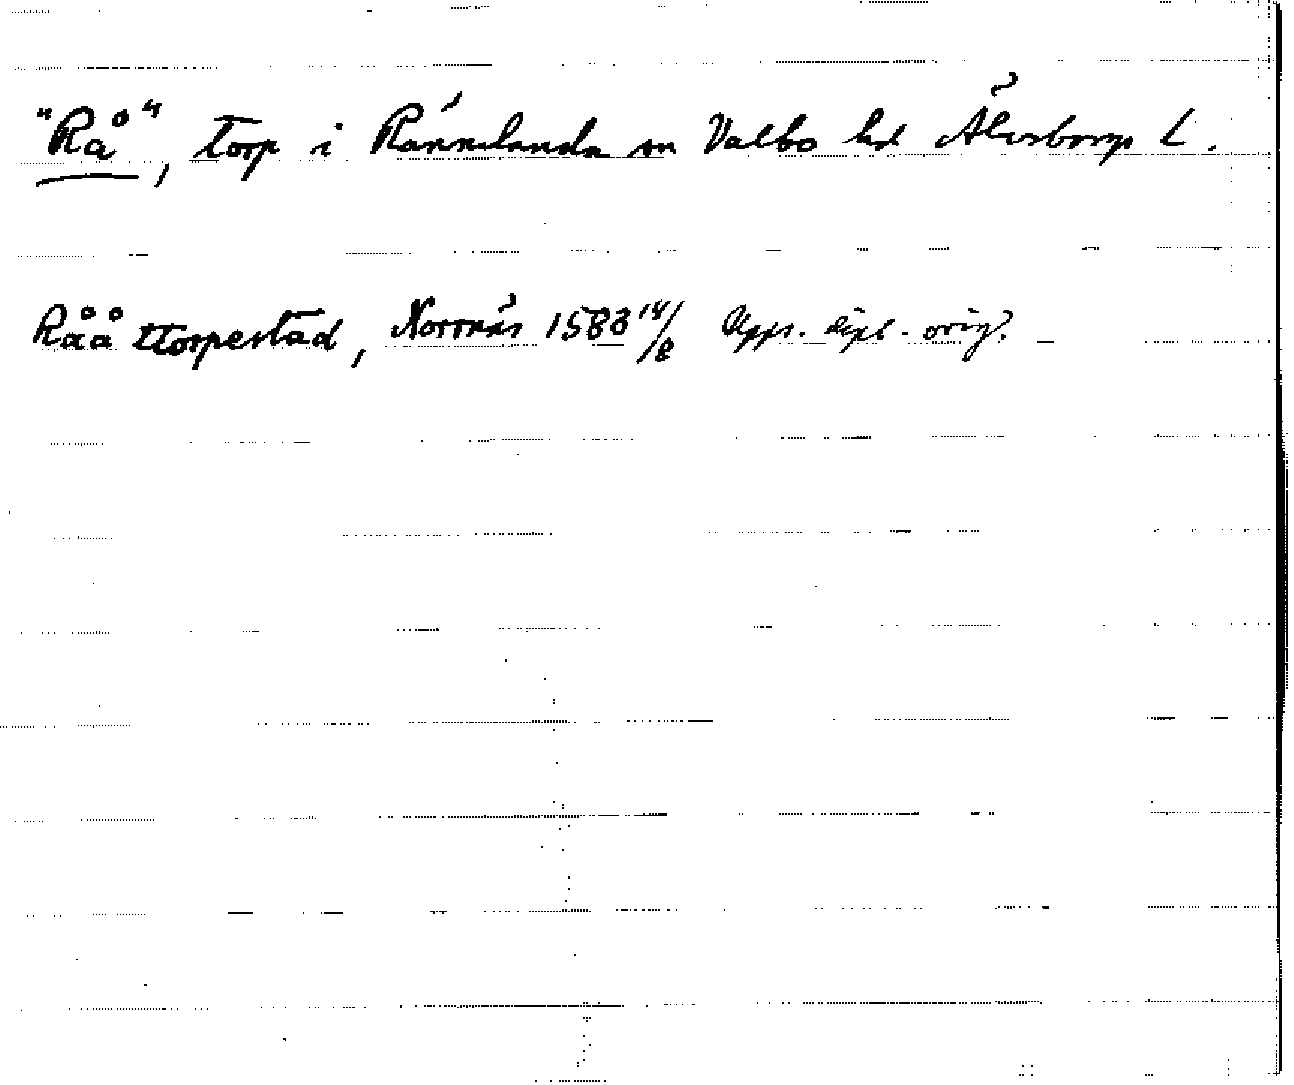 "Rå", torp i Rännelanda sn Valbo hd Älvsborgs L.
Råå ttorpestad, Norrnäs 1583 14/8 Upps. dipl. orig.